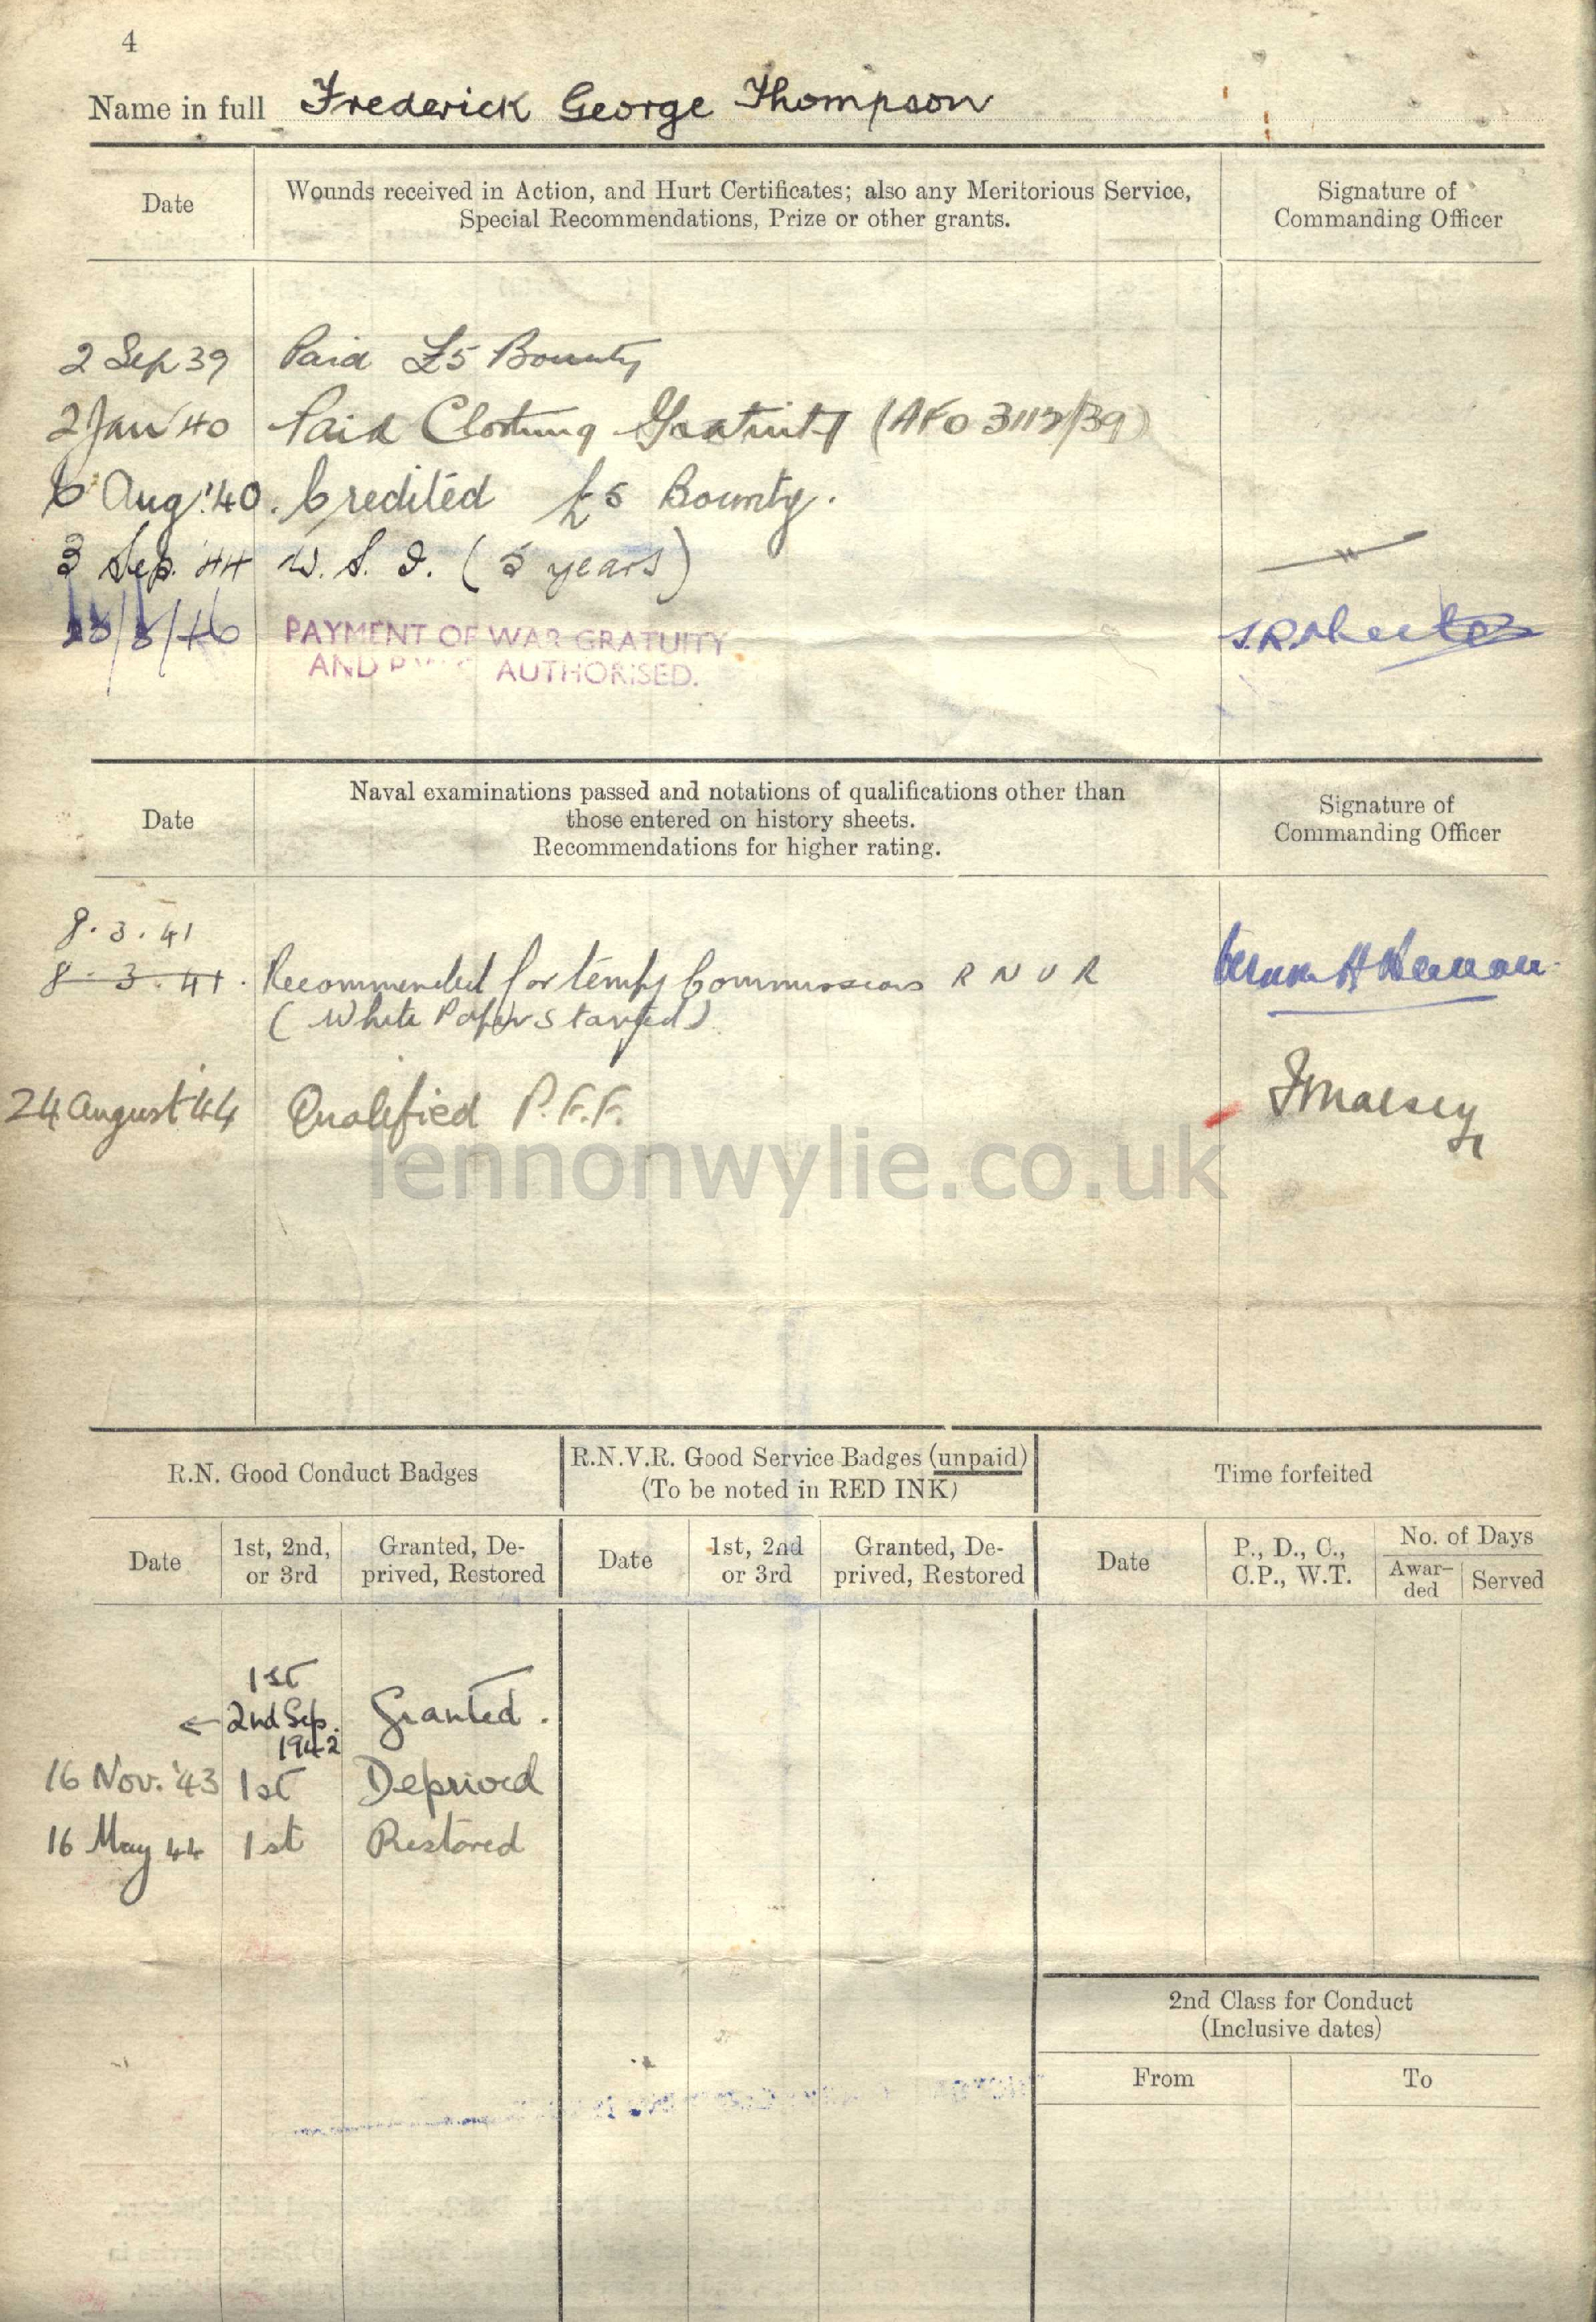 4
Name in full Frederick George Thompson
Date
Wounds received in Action, and Hurt Certificates; also any Meritorious Service,
Special Recommendations, Prize or other grants.
Signature of
Commanding Officer
2 Sep 39 Paid £5 Bounty
2 Jan '40 Paid Clothing Gratuity (AFO 3112/39)
6 Aug '40. Credited £5 Bounty.
3 Sep. '44 W. S. I. (5 years)
PAYMENT OF WAR GRATUITY
AND AUTHORISED.
Date
Naval examinations passed and notations of qualifications other than
those entered on history sheets.
Recommendations for higher rating.
Signature of
Commanding Officer
8. 3. 41
8. 3. 41. Recommended for tempy Commission R N V R
(White Papers started)
24 August '44 Qualified P.F.F.
lennonwylie.co.uk
R.N. Good Conduct Badges
R.N.V.R. Good Service Badges (unpaid)
(To be noted in RED INK)
Time forfeited
Date
1st, 2nd,
or 3rd
Granted, De-
prived, Restored
Date
1st, 2nd
or 3rd
Granted, De-
prived, Restored
Date
P., D., C.,
C.P., W.T.
No. of Days
Awar-
ded
Served
1st
← 2nd Sep. Granted.
1942
16 Nov. '43 1st Deprived
16 May 44 1st Restored
2nd Class for Conduct
(Inclusive dates)
From
To